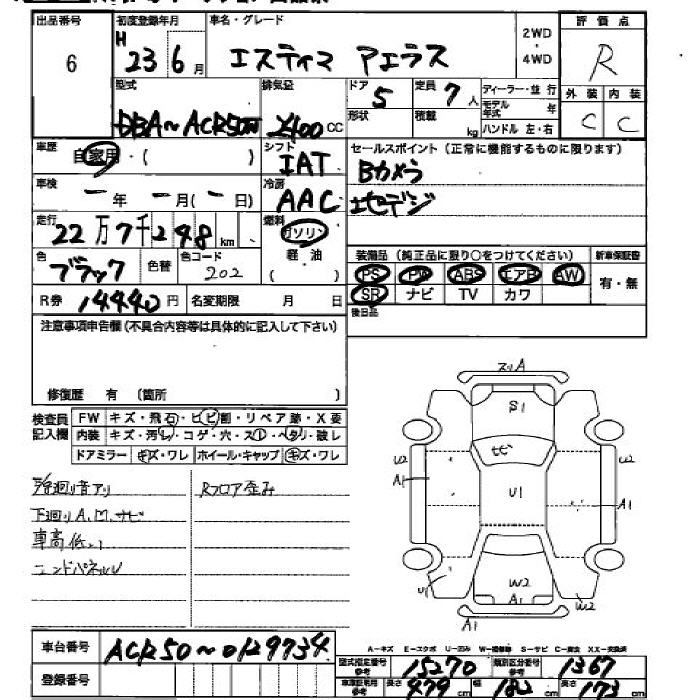 出品番号 初度登録年月 車名・グレード 2WD・4WD 評価点
6 H 23 6月 エスティマ アエラス R
外装 内装
C C
型式 排気量 ドア 5 定員 7人 ディーラー・並行
DBA~ACR50W 2400cc 形状 積載 kg モデル年式 年
ハンドル 左・右
車歴 自家用・( ) シフト IAT セールスポイント (正常に機能するものに限ります)
Bカメラ
車検 ー年 ー月(ー日) 冷房 AAC 地デジ
走行 22万7千248km 燃料 ガソリン
軽油
( )
色 ブラック 色替 色コード 202
装備品 (純正品に限り○をつけてください) 新車保証書
PS PW ABS エアB AW 有・無
SR ナビ TV カワ
R券 14440円 名変期限 月 日
後日品
注意事項申告欄(不具合内容等は具体的に記入して下さい)
修復歴 有 (箇所 )
検査員記入欄 FW キズ・飛石・ヒビ割・リペア跡・X要
内装 キズ・汚レ・コゲ・穴・スレ・ヘタリ・破レ
ドアミラー キズ・ワレ ホイール・キャップ キズ・ワレ
廻り音アリ Rフロア歪み
下廻りA.M.サビ
車高低い
エンドパネルU
スリA
S1
ヒビ
W2 A1
U1
A1
U1 W2 W2
A1
A1
車台番号 ACR50~0129734
A-キズ E-エクボ U-凹み W-補修跡 S-サビ C-腐食 XX-交換済
型式指定番号 参考 15270 類別区分番号 参考 1367
登録番号
車庫証明用 参考 長さ 479cm 幅 180cm 高さ 173cm